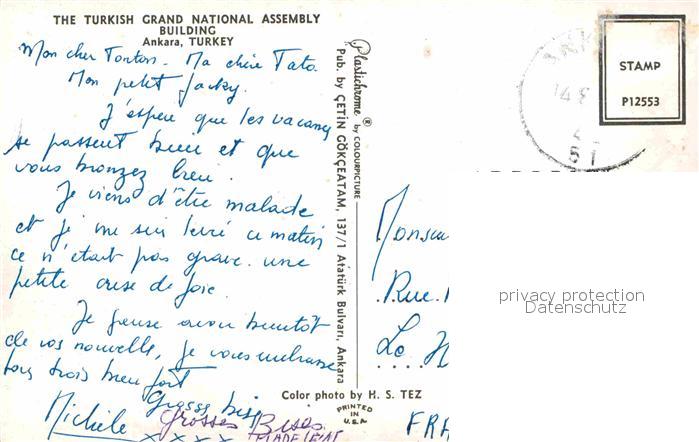 THE TURKISH GRAND NATIONAL ASSEMBLY
BUILDING
Ankara, TURKEY
Mon cher Tonton. Ma chère Tata.
Mon petit Jacky.
J'espère que les vacances
se passent bien et que
vous bronzez bien.
Je viens d'être malade
et je me suis levé ce matin
ce n'était pas grave. une
petite crise de foie.
Je pense avoir bientôt
de vos nouvelle, je vous embrasse
tous trois bien fort
Grosses bises
Michèle
Grosses Bises
MADELEINE
XXXX
Plastichrome ® by COLOURPICTURE
Pub. by ÇETİN GÖKÇEATAM, 137/1 Atatürk Bulvarı, Ankara
Color photo by H. S. TEZ
PRINTED
IN
U.S.A.
STAMP
P12553
Monsieur
Rue
Le H
FRA
privacy protection
Datenschutz